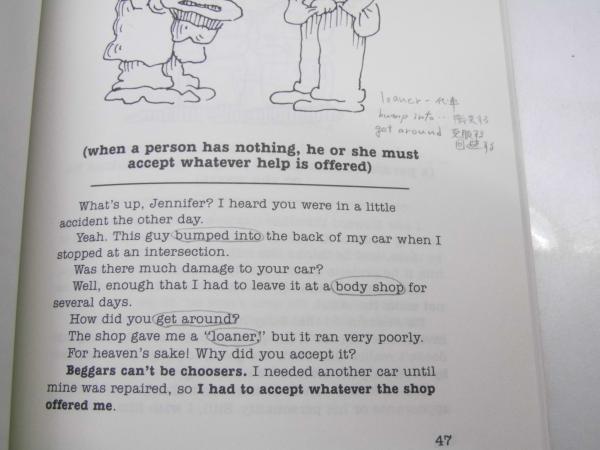 loaner - 代車
bump into ‥ 衝突する
get around
回避する
(when a person has nothing, he or she must
accept whatever help is offered)
What's up, Jennifer? I heard you were in a little
accident the other day.
Yeah. This guy bumped into the back of my car when I
stopped at an intersection.
Was there much damage to your car?
Well, enough that I had to leave it at a body shop for
several days.
How did you get around?
The shop gave me a "loaner," but it ran very poorly.
For heaven's sake! Why did you accept it?
Beggars can't be choosers. I needed another car until
mine was repaired, so I had to accept whatever the shop
offered me.
47